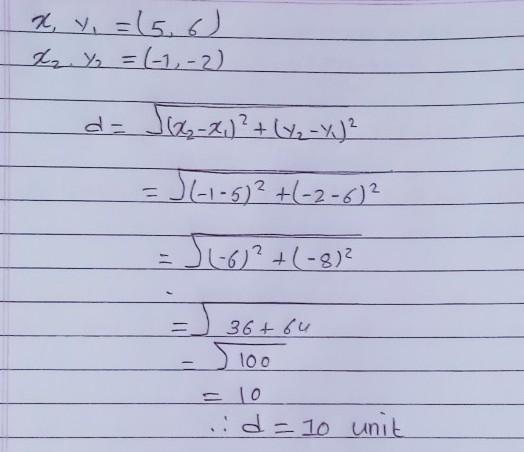 x₁ y₁ = (5, 6)
x₂ y₂ = (-1, -2)
d = √(x₂-x₁)² + (y₂-y₁)²
= √(-1-5)² + (-2-6)²
= √(-6)² + (-8)²
= √36 + 64
= √100
= 10
∴ d = 10 unit